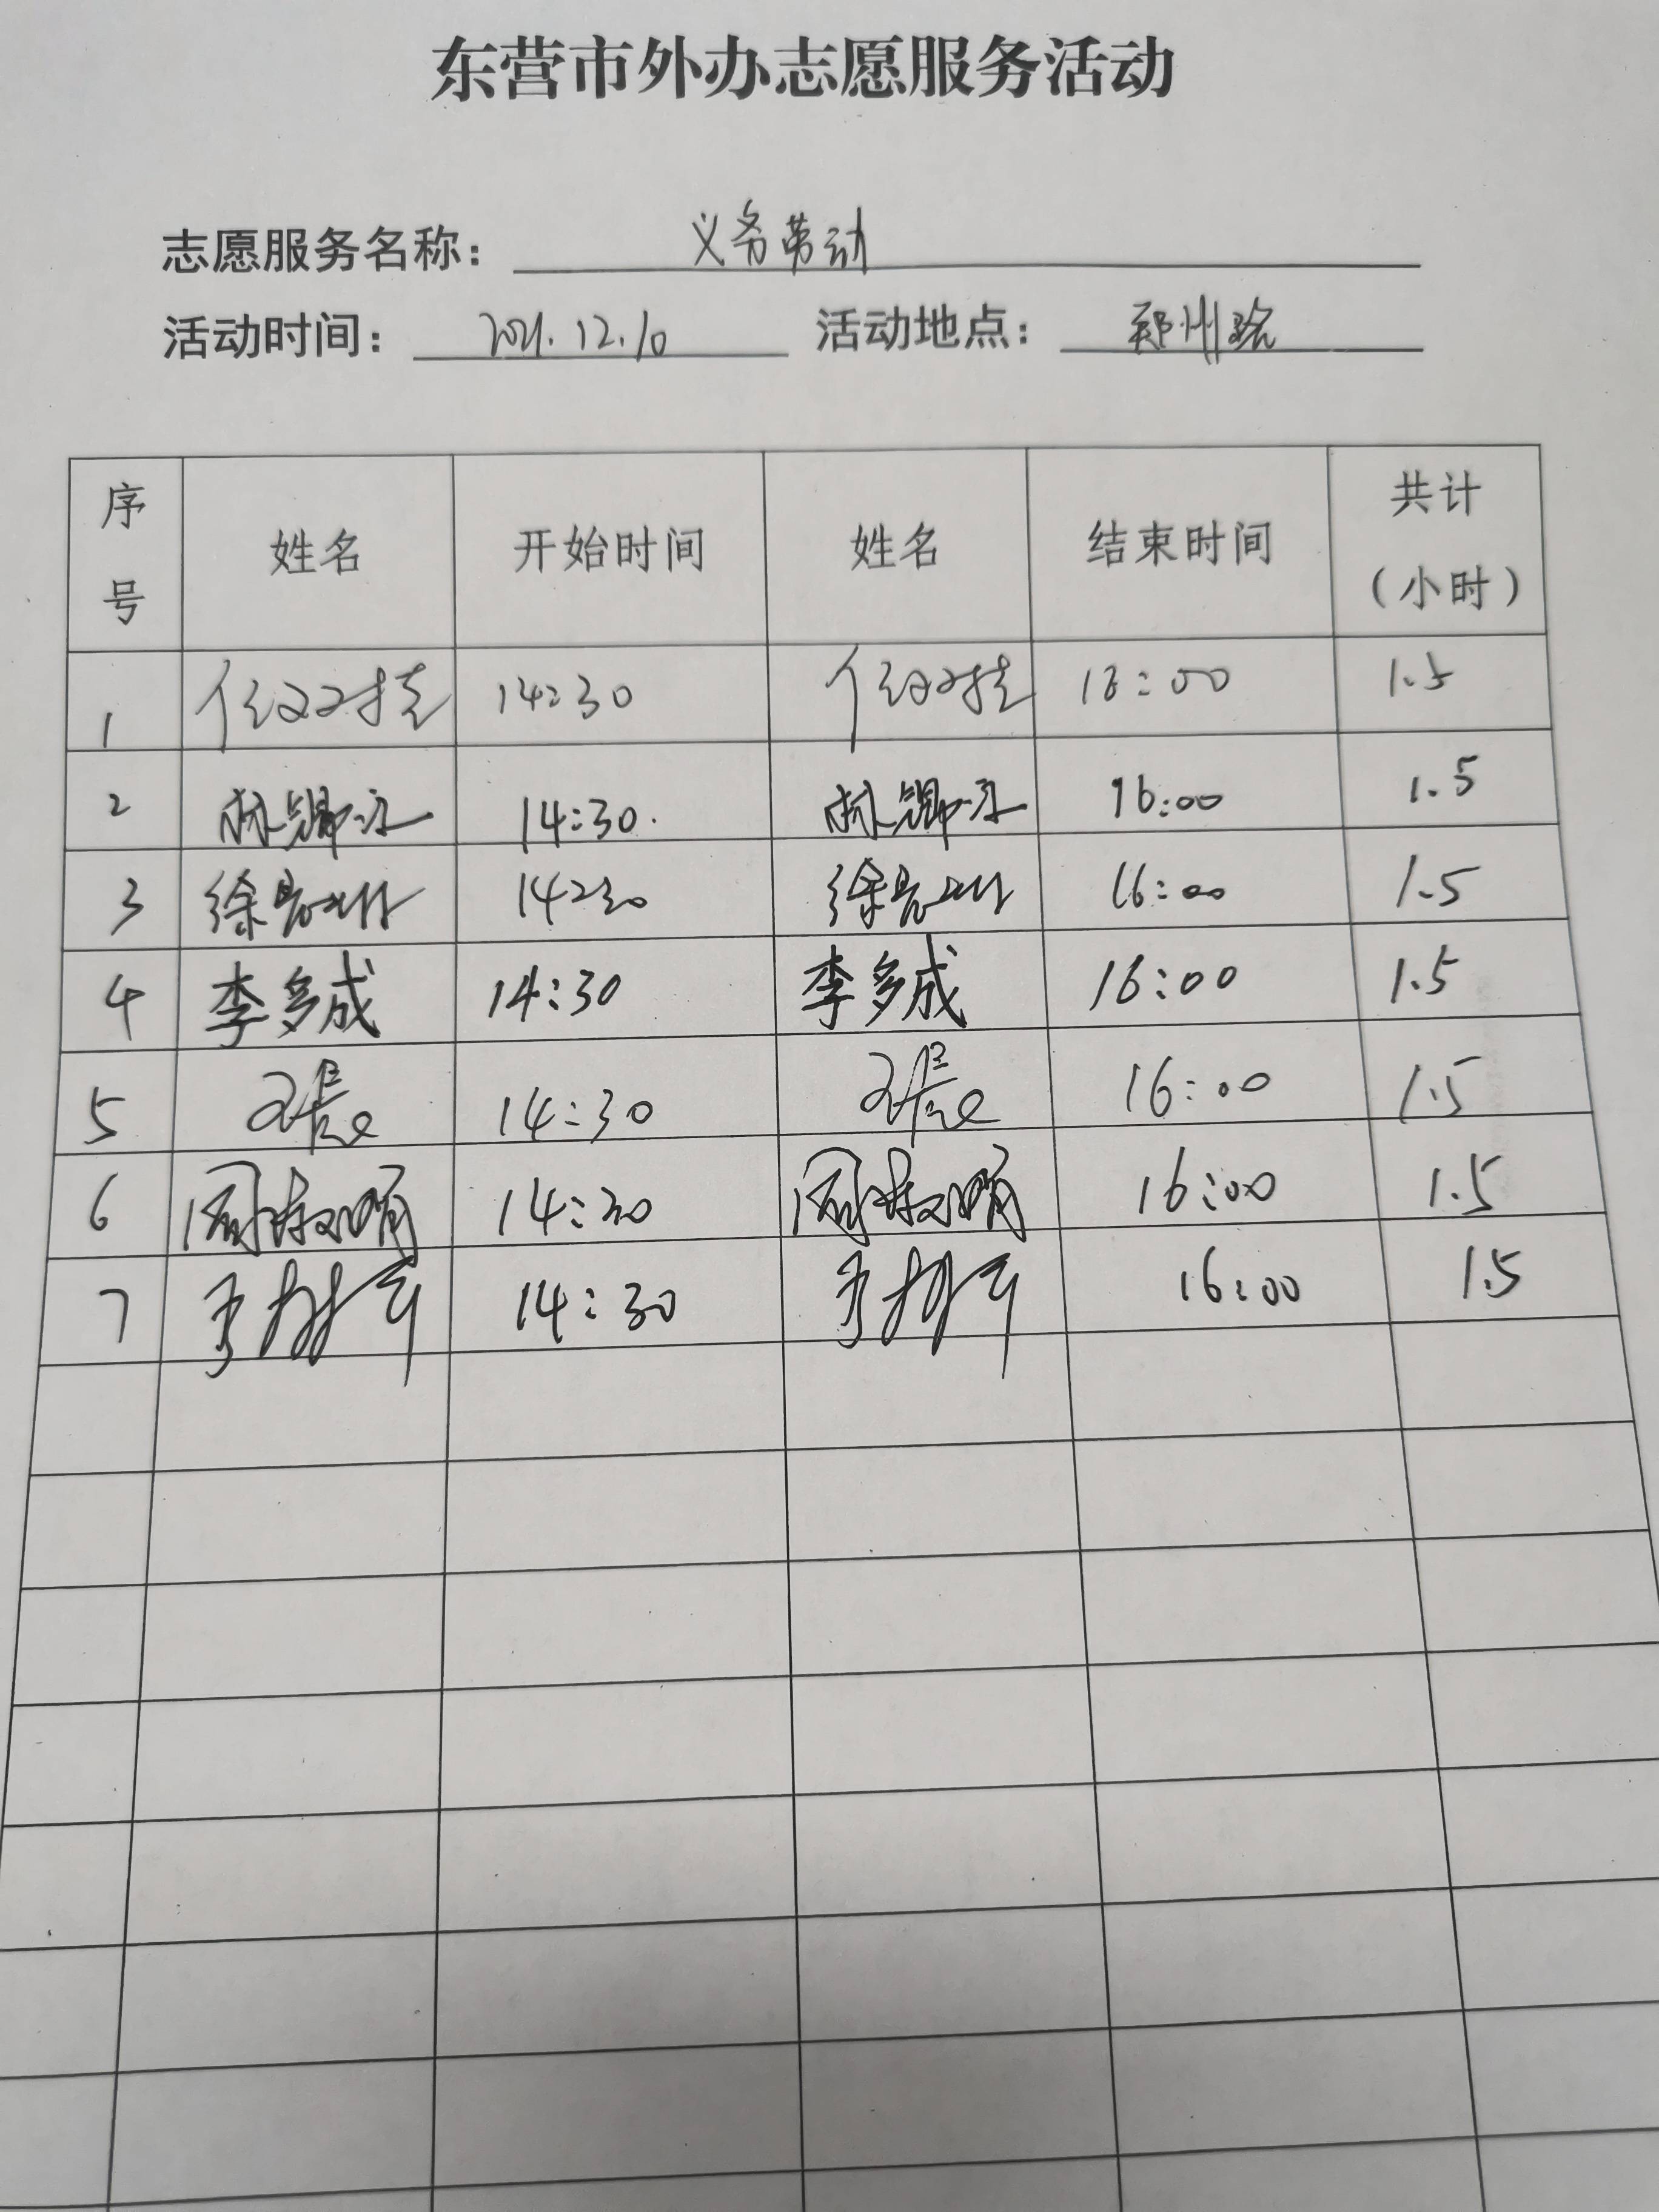 东营市外办志愿服务活动
志愿服务名称： 义务劳动
活动时间： 2021.12.10 活动地点： 郑州路
序号 姓名 开始时间 姓名 结束时间 共计（小时）
1 14:30 16:00 1.5
2 14:30 16:00 1.5
3 14:30 16:00 1.5
4 李多成 14:30 李多成 16:00 1.5
5 14:30 16:00 1.5
6 14:30 16:00 1.5
7 14:30 16:00 1.5